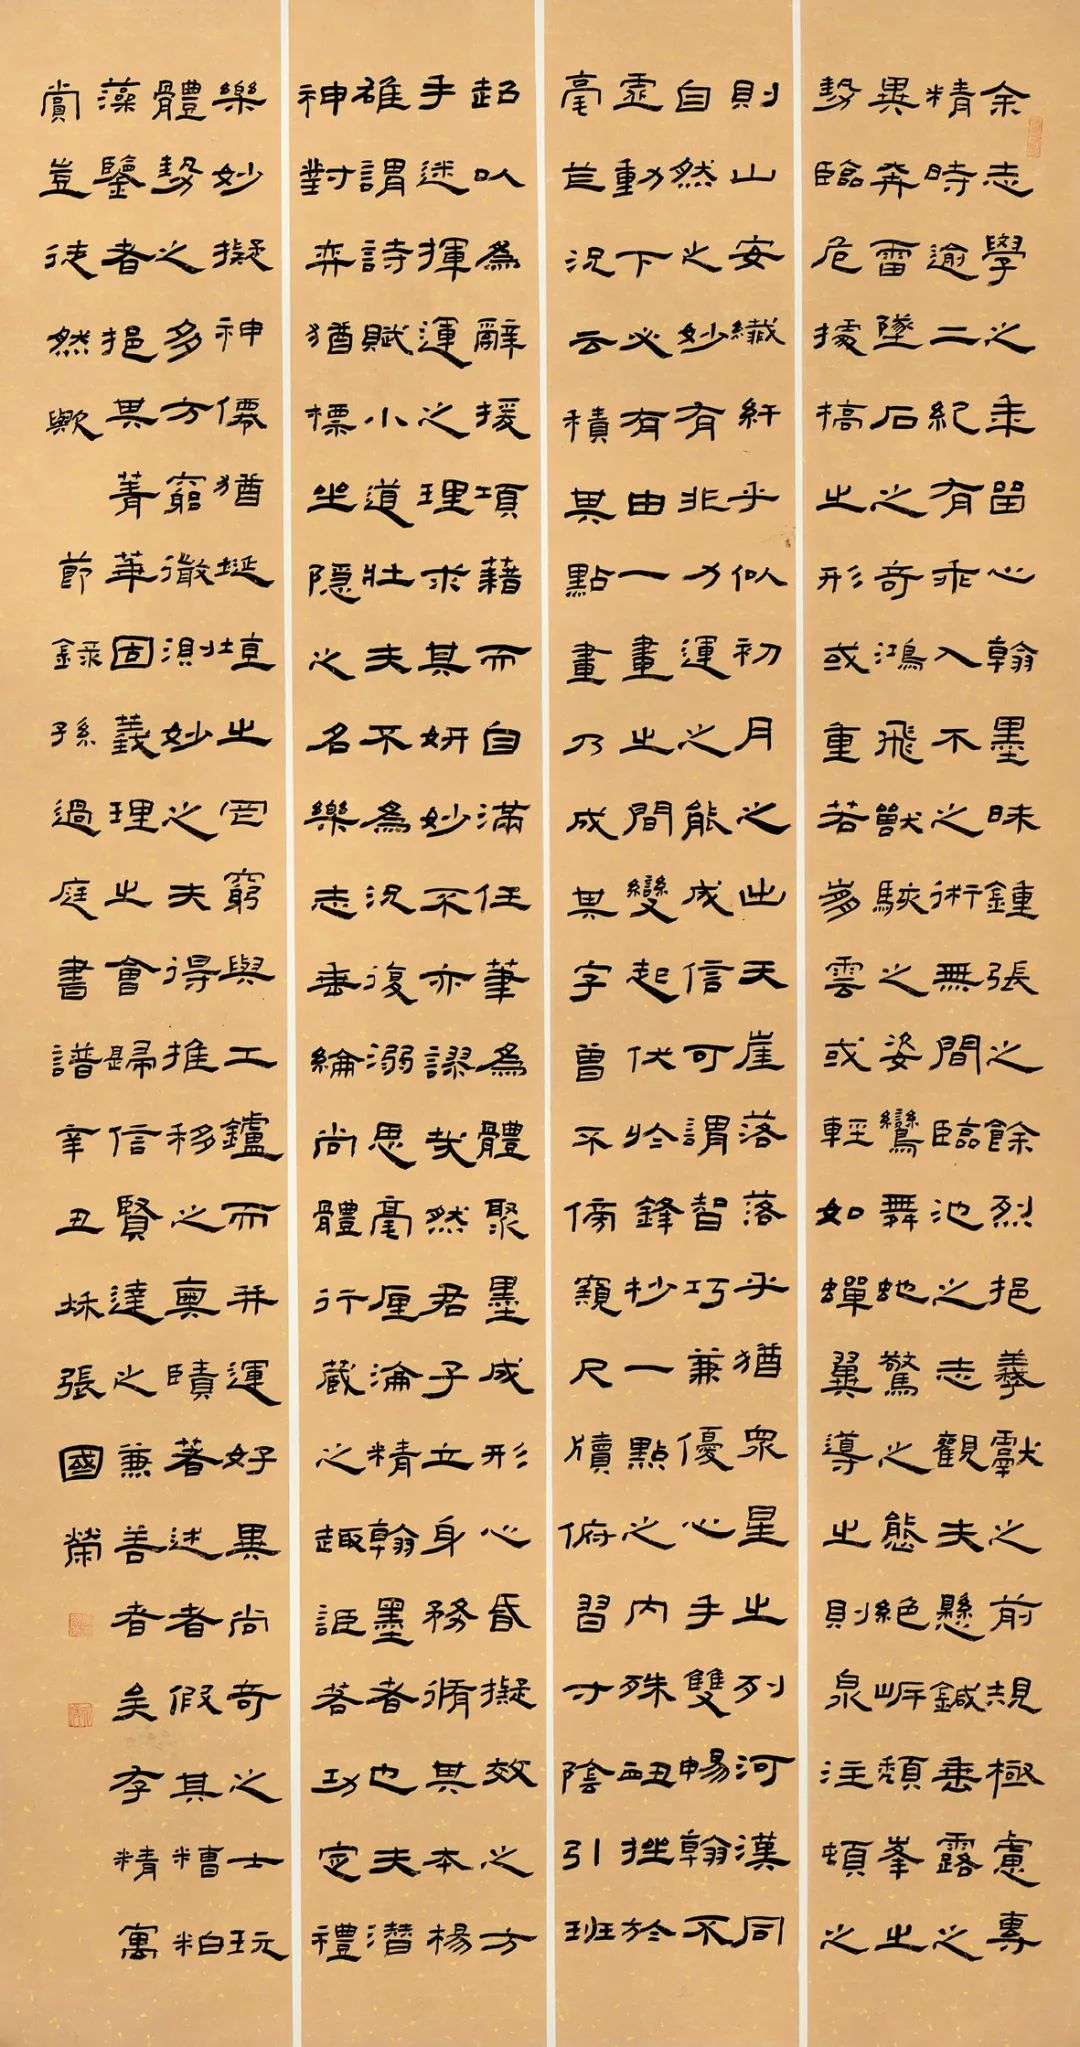 余志學之年留心翰墨味鍾張之餘烈挹羲獻之前規極慮專
精時逾二紀有乖入木之術無間臨池之志觀夫懸鍼垂露之
異奔雷墜石之奇鴻飛獸駭之姿鸞舞蛇驚之態絕岸頹峯之
勢臨危據槁之形或重若崩雲或輕如蟬翼導之則泉注頓之
則山安纖纖乎似初月之出天崖落落乎猶眾星之列河漢同
自然之妙有非力運之能成信可謂智巧兼優心手雙暢翰不
虛動下必有由一畫之間變起伏於鋒杪一點之內殊衄挫於
毫芒況云積其點畫乃成其字曾不傍窺尺牘俯習寸陰引班
超以為辭援項籍而自滿任筆為體聚墨成形心昏擬效之方
手迷揮運之理求其妍妙不亦謬哉然君子立身務脩其本楊
雄謂詩賦小道壯夫不為況復溺思毫厘淪精翰墨者也夫潛
神對弈猶標坐隱之名樂志垂綸尚體行藏之趣詎若功定禮
樂妙擬神僊猶埏埴之罔窮與工鑪而并運好異尚奇之士玩
體勢之多方窮微測妙之夫得推移之奧賾著述者假其糟粕
藻鑒者挹其菁華固義理之會歸信賢達之兼善者矣存精寓
賞豈徒然歟
節錄孫過庭書譜辛丑秌張國榮